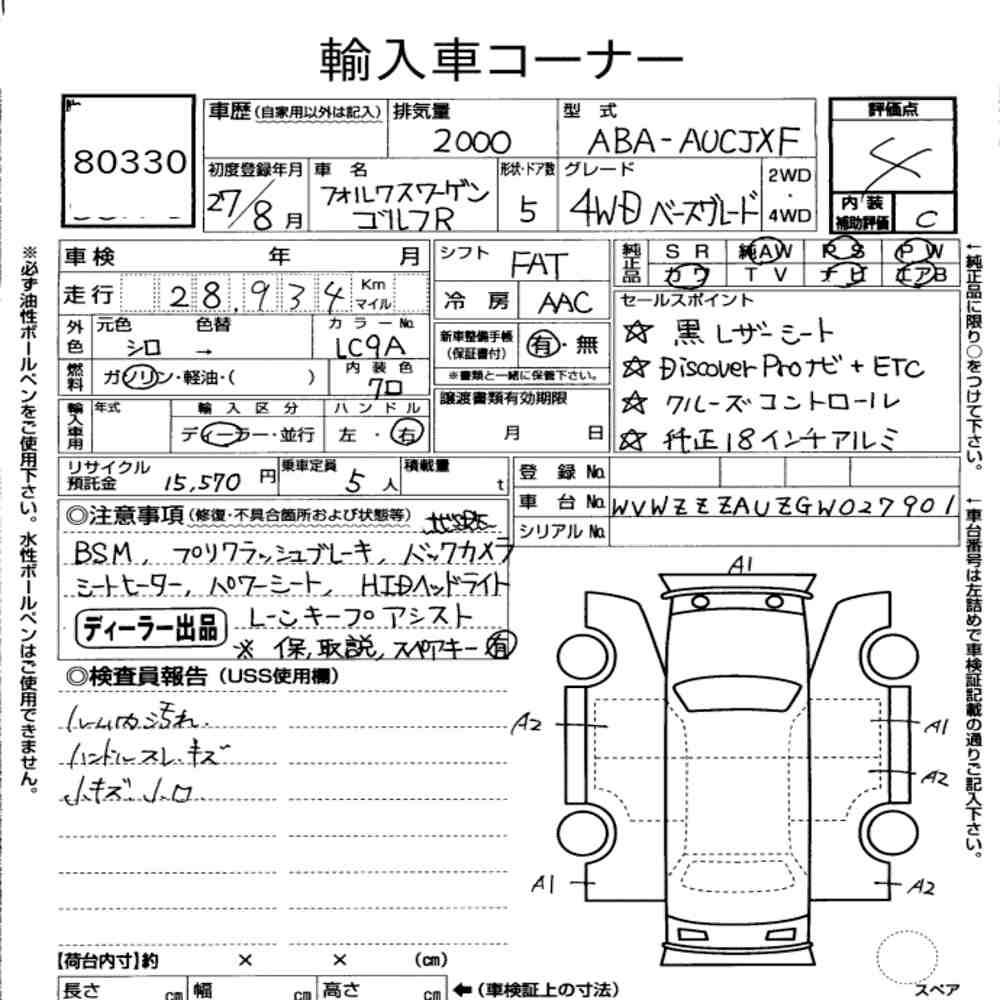 輸入車コーナー
80330
車歴 (自家用以外は記入)
排気量
2000
型 式
ABA-AUCJXF
評価点
4
初度登録年月
27/8月
車 名
フォルクスワーゲン
ゴルフR
形状・ドア数
5
グレード
4WD ベースグレード
2WD
・
4WD
内 装
補助評価
C
車検 年 月
シフト
FAT
純正品
S R 純AW P S P W
カワ T V ナビ エアB
走行 28,934 Km マイル
冷 房
AAC
セールスポイント
☆ 黒レザーシート
☆ Discover Proナビ + ETC
☆ クルーズコントロール
☆ 純正18インチアルミ
外色
元色 色替
シロ →
カラーNo.
LC9A
新車整備手帳
(保証書付)
有・無
※書類と一緒に保管下さい。
燃料
ガソリン・軽油・( )
内 装 色
クロ
譲渡書類有効期限
月 日
輸入車用
年式
輸 入 区 分
ディーラー・並行
ハ ン ド ル
左 ・ 右
リサイクル
預託金
15,570 円
乗車定員
5 人
積載量
t
登 録 No.
車 台 No. WVWZZZAUZGW027901
シリアル No.
◎注意事項 (修復・不具合箇所および状態等)
BSM, プリクラッシュブレーキ, バックカメラ
シートヒーター, パワーシート, HIDヘッドライト
ディーラー出品
レーンキープアシスト
※ 保, 取説, スペアキー有
◎検査員報告 (USS使用欄)
ルーム内汚れ.
ハンドルスレ・キズ
小キズ 小凹
A1
A2
A1
A2
A1
A2
【荷台内寸】約 × × (cm)
長さ cm 幅 cm 高さ cm
←(車検証上の寸法)
スペア
※必ず油性ボールペンをご使用下さい。水性ボールペンはご使用できません。
←純正品に限り○をつけて下さい。
←車台番号は左詰めで車検証記載の通りご記入下さい。